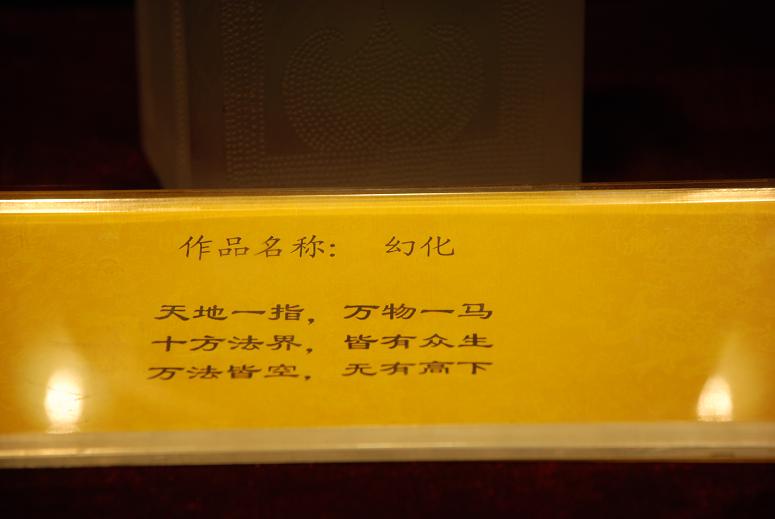 作品名称： 幻化
天地一指，万物一马
十方法界，皆有众生
万法皆空，无有高下